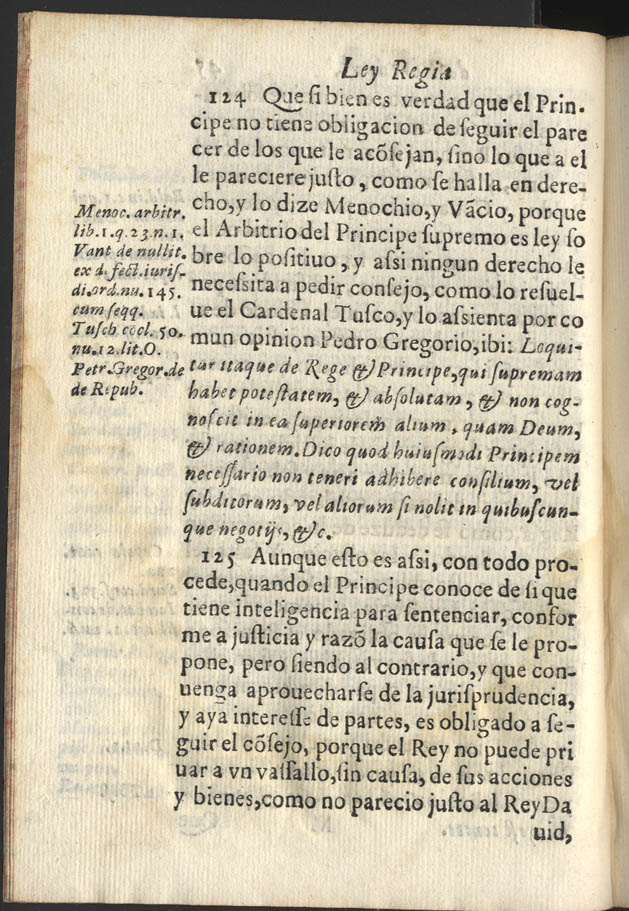 Ley Regia
124 Que ſi bien es verdad que el Prin-
cipe no tiene obligacion de ſeguir el pare
cer de los que le acõſejan, ſino lo que a el
le pareciere juſto, como ſe halla en dere-
cho, y lo dize Menochio, y Vãcio, porque
el Arbitrio del Principe ſupremo es ley ſo
bre lo poſitiuo, y aſsi ningun derecho le
neceſsita a pedir conſejo, como lo reſuel-
ue el Cardenal Tuſco, y lo aſsienta por co
mun opinion Pedro Gregorio, ibi: Loqui-
tur itaque de Rege & Principe, qui ſupremam
habet poteſtatem, & abſolutam, & non cog-
noſcit in ea ſuperiorem alium, quam Deum,
& rationem. Dico quod huiuſmodi Principem
neceſſario non teneri adhibere conſilium, vel
ſubditorum, vel aliorum ſi nolit in quibuſcun-
que negotijs, &c.
125 Aunque eſto es aſsi, con todo pro-
cede, quando el Principe conoce de ſi que
tiene inteligencia para ſentenciar, confor
me a juſticia y razõ la cauſa que ſe le pro-
pone, pero ſiendo al contrario, y que con-
uenga aprouecharſe de la juriſprudencia,
y aya intereſſe de partes, es obligado a ſe-
guir el cõſejo, porque el Rey no puede pri
uar a vn vaſſallo, ſin cauſa, de ſus acciones
y bienes, como no parecio juſto al Rey Da
uid,
Menoc. arbitr.
lib. 1. q. 23. n. 1.
Vant de nullit.
ex d. fect. iuriſ-
di. ord. nu. 145.
cum ſeqq.
Tuſch cõcl. 50.
nu. 12. lit. O.
Petr. Gregor. de
de Repub.